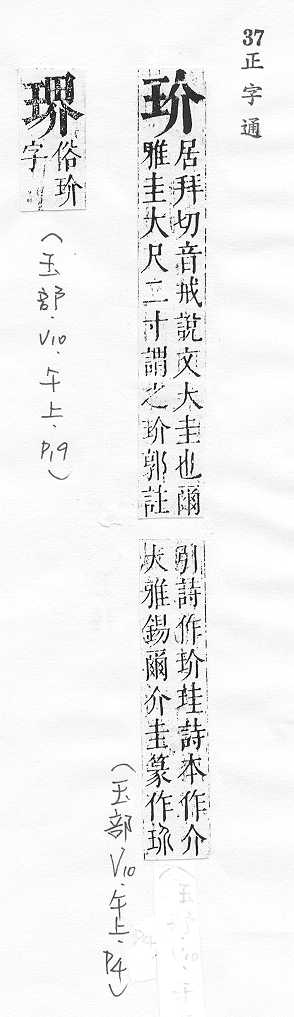 37正字通
玠
居拜切音戒說文大圭也爾
雅圭大尺二寸謂之玠郭註
引詩作玠珪詩本作介
大雅錫爾介圭篆作玠
(玉部.V10.午上.P4)
琾
俗玠
字
(玉部.V10.午上.P19)